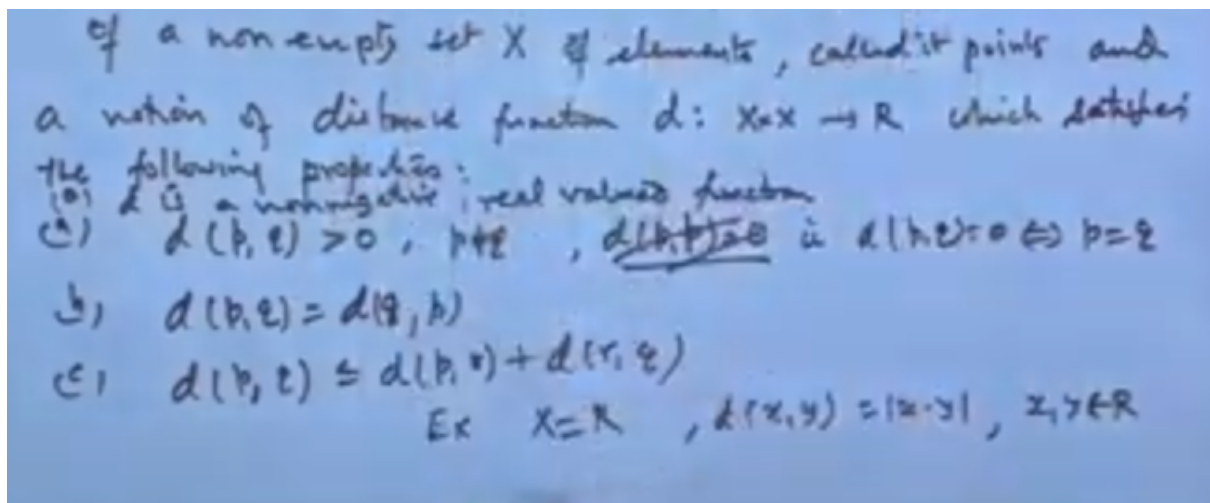 of a non empty set X of elements, called it points and
a notion of distance function d: X×X → R which satisfies
the following properties:
(0) d is a nonnegative, real valued function
(a) d(p,q) >0, p≠q , d(p,p)=0 ie d(p,q)=0 ⇔ p=q
b) d(p,q) = d(q,p)
(c) d(p,q) ≤ d(p,r) + d(r,q)
Ex X=R , d(x,y) = |x-y|, x,y∈R